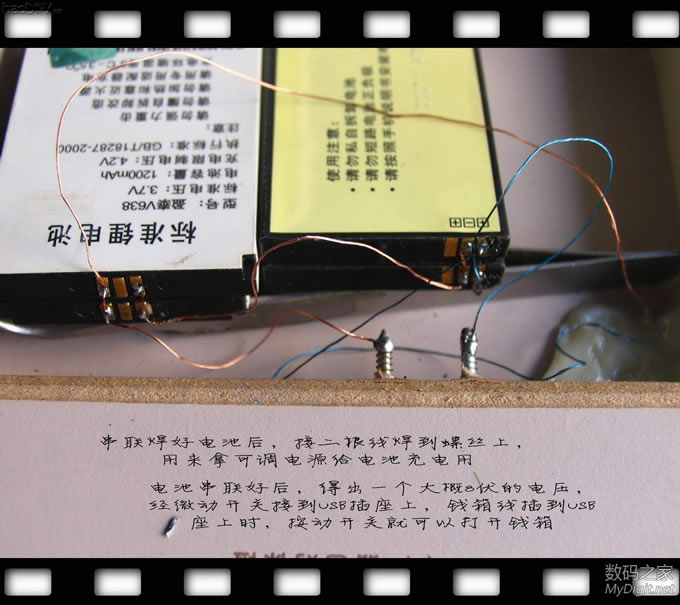 haoDIY.net
标准锂电池
型号：盈泰V638
标准电压：3.7V
电池容量：1200mAh
充电限制电压：4.2V
执行标准：GB/T18287-2000
注意：
请勿强力重击
请勿擅自拆卸改造
请勿加热和靠近火源
请使用专用适配器充电
使用注意：
·请勿私自拆卸电池
·请勿短路电池正负极
·请按照手机说明书安装
串联焊好电池后，接二根线焊到螺丝上，
用来拿可调电源给电池充电用
电池串联好后，得出一个大概8伏的电压，
经微动开关接到USB插座上，钱箱线插到USB
座上时，按动开关就可以打开钱箱
数码之家
MyDigit.net